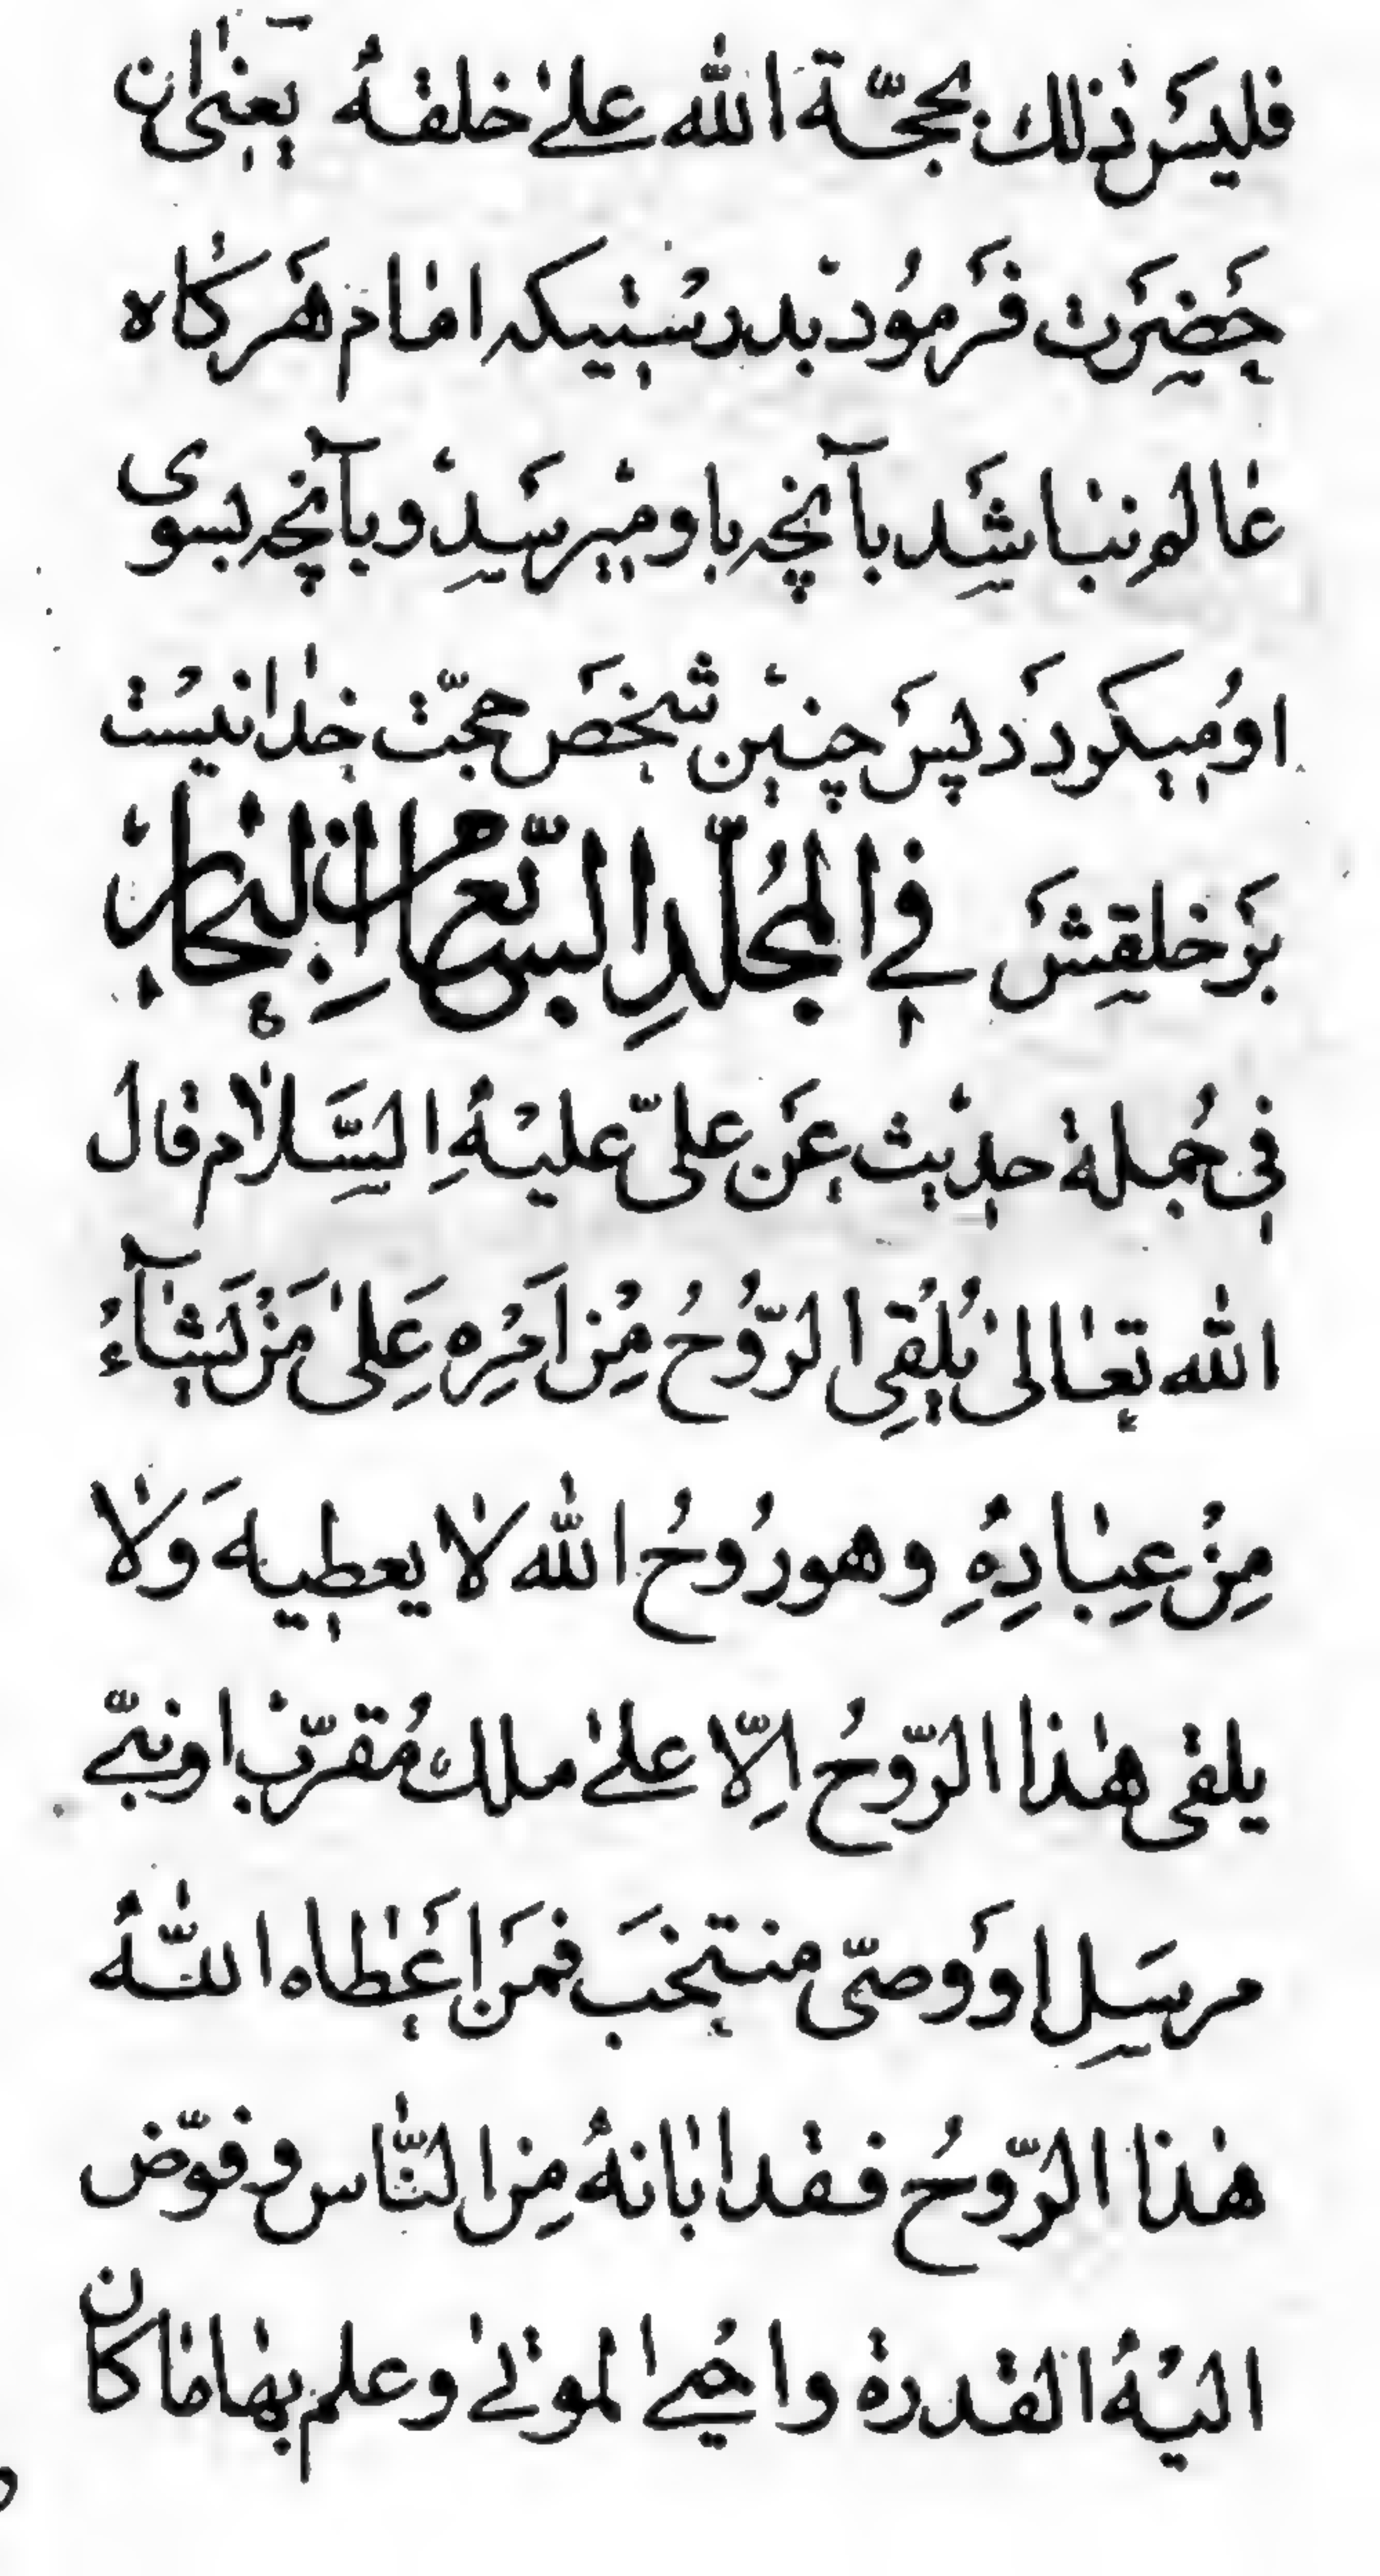 فليسَ ذٰلك بحجّة اللّٰه علىٰ خلقهٖ يعنى ان
حَضرَت فَرمُود بدرستيكه امام هَركاه
عالم نباشَد بآنچه باو ميرسَد و بآنچه بسوى
او ميكردَد پسَ چنين شخصَ حجّت خدا نيست
بَر خلقشَ فى المُجلّدِ السّابع من البحار
فى جُملة حديث عَن علىّ عليه السَّلام قال
اللّٰه تعالىٰ يُلْقِى الرّوُحُ مِنْ اَمْرِه عَلىٰ مَنْ يَشآءُ
مِنْ عِبادِهِ وهو رُوحُ اللّٰه لا يعطيهَ ولا
يلقى هٰذا الرّوحُ اِلّا علىٰ ملك مُقرّب او نبىّ
مرسَلِ اوَ وصىّ منتخبَ فمَن اَعطاه اللّٰهُ
هٰذا الرّوحُ فقد ابانهُ مِن النّاس و فوّض
اليْهُ القدرة واحُيى الموتىٰ وعلم بها ما كان